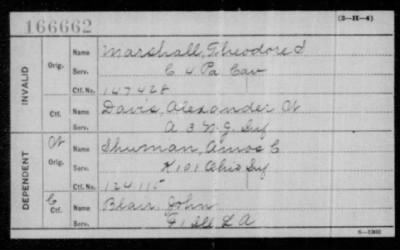 166662
(3-H-4)
INVALID
Orig.
Name Marshall, Theodore S
Serv. C 4 Pa Cav
Ctf. No. 147428
Ctf.
Name Davis, Alexander W
Serv. A 3 N.J. Inf
DEPENDENT
W
Orig.
Name Shuman, Amos C
Serv. K 101 Ohio Inf
Ctf. No. 124115
C
Ctf.
Name Blair, John
Serv. F 1 Ill L A